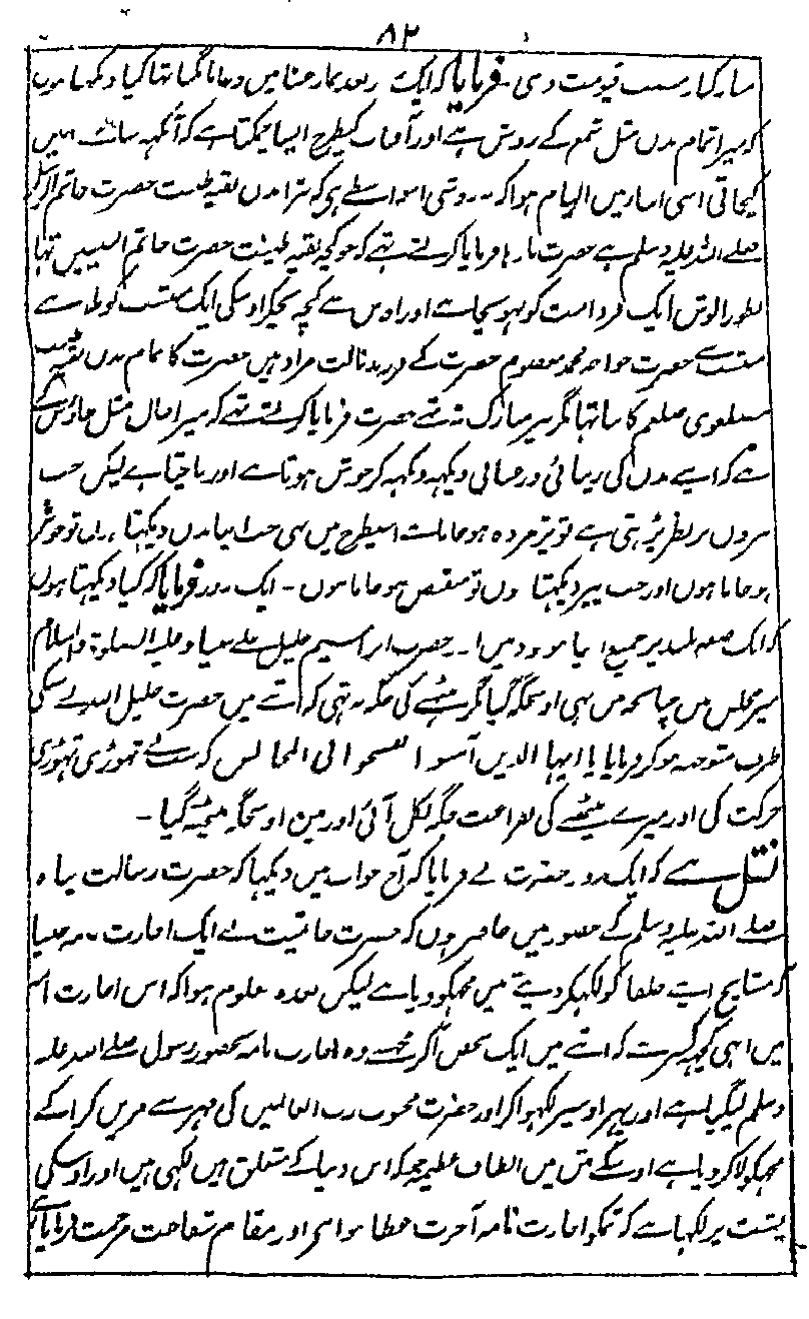 ۸۲
فرمایا کہ ایک روز بعد نماز عشا میں گیا تھا کیا دیکھتا ہوں
کہ میرا تمام بدن مثل شمع کے روشن ہے اور آفتاب کیطرح ایسا چمکتا ہے کہ آنکھہ سامنے نہیں
کیجاتی اسی اثنا میں الہام ہوا کہ یہ روشنی اسواسطے ہی کہ تیرا بدن بقیہ طینت حضرت خاتم الرسل
صلے اللہ علیہ وسلم ہے حضرت بارہا فرمایا کرتے تہے کہ جو کچہہ بقیہ طینت حضرت خاتم النبیین تہا
بطور الوش ایک فرد امت کو پہونچا ہے اور اوس سے کچہہ ایک
سے حضرت خواجہ محمد معصوم حضرت کے فرزند ثالث مراد ہیں حضرت کا تمام بدن بقیہ
مصطفوی صلعم کا سا تہا مگر پیر مبارک نہ تہے حضرت فرمایا کرتے تہے کہ میرا حال مثل طاؤس کے
ہے کہ اپنے بدن کی زیبائی و رعنائی دیکہہ دیکہہ کر خوش ہوتا ہے اور ناچتا ہے لیکن جب
پیروں پر نظر پڑتی ہے تو پژمردہ ہو جاتا ہے اسیطرح میں بہی جب اپنا بدن دیکہتا ہوں تو خوش
ہو جاتا ہوں اور جب پیر دیکہتا ہوں تو منقبض ہو جاتا ہوں - ایک روز فرمایا کہ کیا دیکہتا ہوں
کہ ایک صفہ بلند پر جمیع انبیا موجود ہیں اور حضرت ابراہیم خلیل علے نبینا و علیہ الصلوۃ والسلام
میر مجلس ہیں چنانچہ میں بہی اوسجگہ گیا مگر بیٹہنے کی جگہ نہ تہی کہ اتنے میں حضرت خلیل اللہ نے سبکی
طرف متوجہ ہو کر فرمایا یا ایہا الذین آمنوا تفسحوا فی المجالس کہ سب نے تہوڑی تہوڑی
حرکت کی اور میرے بیٹہنے کی بفراغت جگہ نکل آئی اور میں اوسجگہ بیٹہہ گیا -
نقل ہے کہ ایک روز حضرت نے فرمایا کہ آج خواب میں دیکہا کہ حضرت رسالت پناہ
صلے اللہ علیہ وسلم کے حضور میں حاضر ہوں کہ حضرت خاتمیت نے ایک اجازت نامہ جیسا
کہ مشایخ اپنے خلفا کو لکہکر دیتے ہیں مجہکو دیا ہے لیکن بعدہ معلوم ہوا کہ اس اجازت نامہ
میں ابہی کچہہ کسر ہے کہ اتنے میں ایک شخص آکر مجہسے وہ اجازت نامہ بحضور رسول صلے اللہ علیہ
وسلم لیگیا ہے اور پہر اوسپر لکہوا کر اور حضرت محبوب رب العالمین کی مہر سے مزین کرا کے
مجہکو لا کر دیا ہے اوسکے متن میں الطاف عظیمہ جو کہ اس دنیا کے متعلق ہیں لکہی ہیں اور اوسکی
پشت پر لکہا ہے کہ تمکو اجازت نامہ آخرت عطا ہوا ہے اور مقام شفاعت مرحمت فرمایا ہے